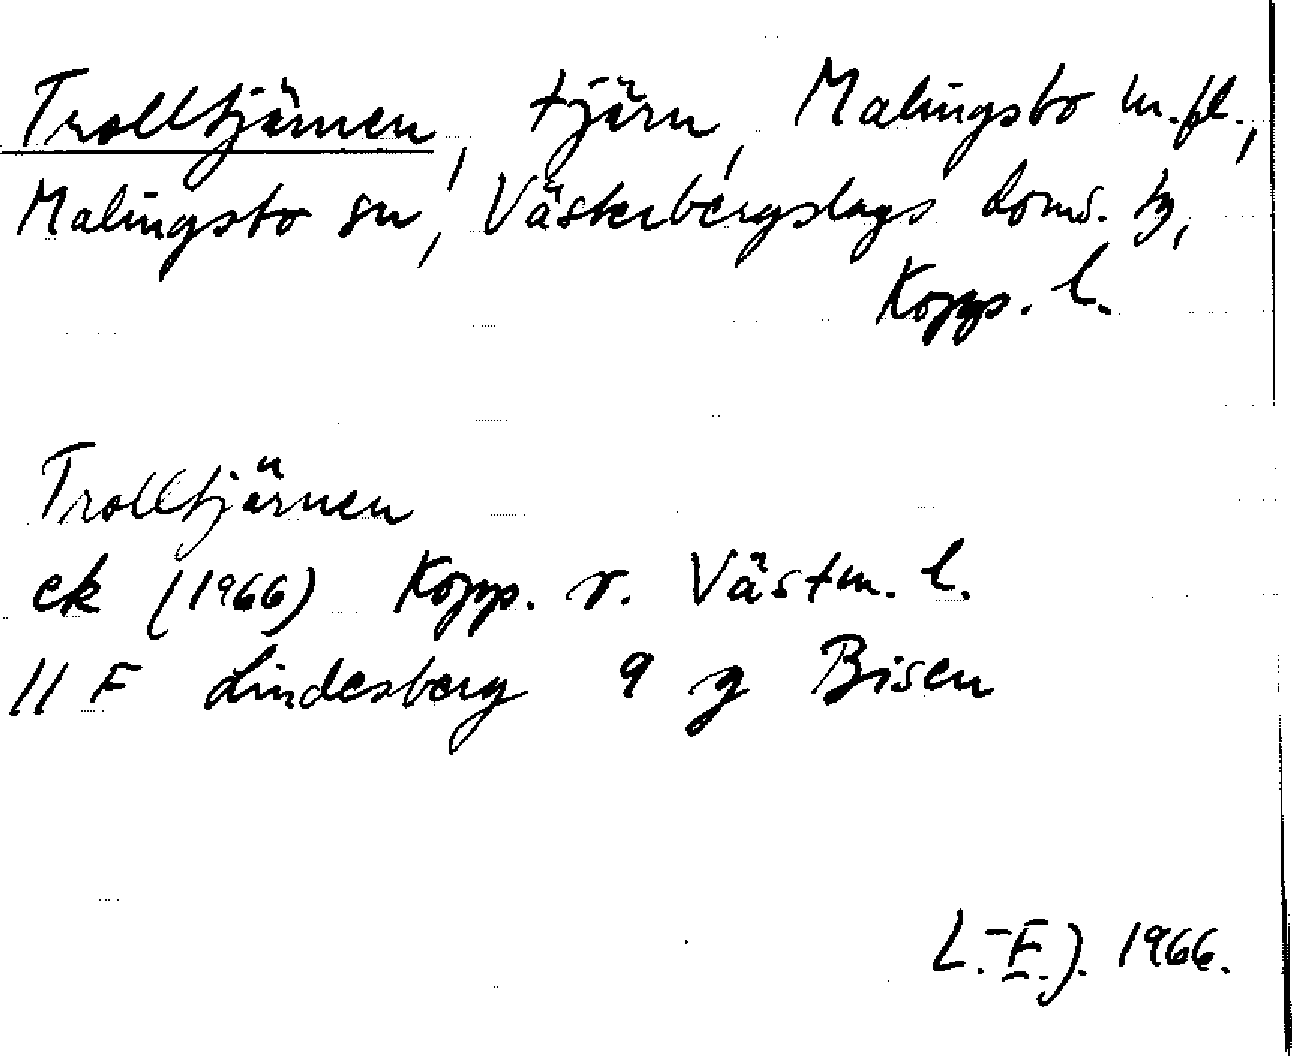 Trolltjärnen, tjärn, Malingsbo m.fl.,
Malingsbo sn, Västerbergslags doms. tg,
Kopp. l.
Trolltjärnen
ek (1966) Kopp. r. Västm. l.
11 F Lindesberg 9 g Bisen
L.-E.J. 1966.